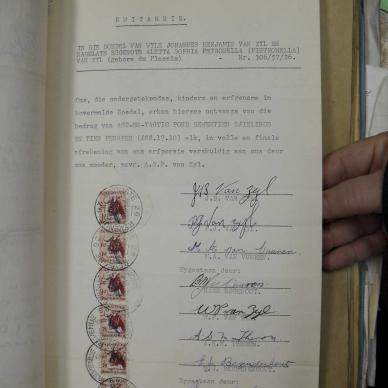 KWITANSIE.
IN DIE BOEDEL VAN WYLE JOHANNES BENJAMIN VAN ZYL EN
NAGELATE EGGENOTE ALETTA SOPHIA PETRONELLA (PIETRONELLA)
VAN ZYL (gebore du Plessis) - Nr. 306/57/26.
Ons, die ondergetekendes, kinders en erfgename in
bovermelde Boedel, erken hiermee ontvangs van die
bedrag van AGT-EN-TAGTIG POND SEWENTIEN SJIELINGS
EN TIEN PENNIES (£88.17.10) elk, in volle and finale
afrekening van ons erfporsie verskuldig aan ons deur
ons moeder, mevr. A.S.P. van Zyl.
J B Van Zyl
J.B. VAN
van Zyl
M. A. van Vuuren
M.A. VAN VUUREN.
Bygestaan deur:
HIER EGGENOOT.
W P van Zyl
VAN ZYL.
A S M Theron
A.S.M. THERON.
Bezuidenhout
Bygestaan deur: